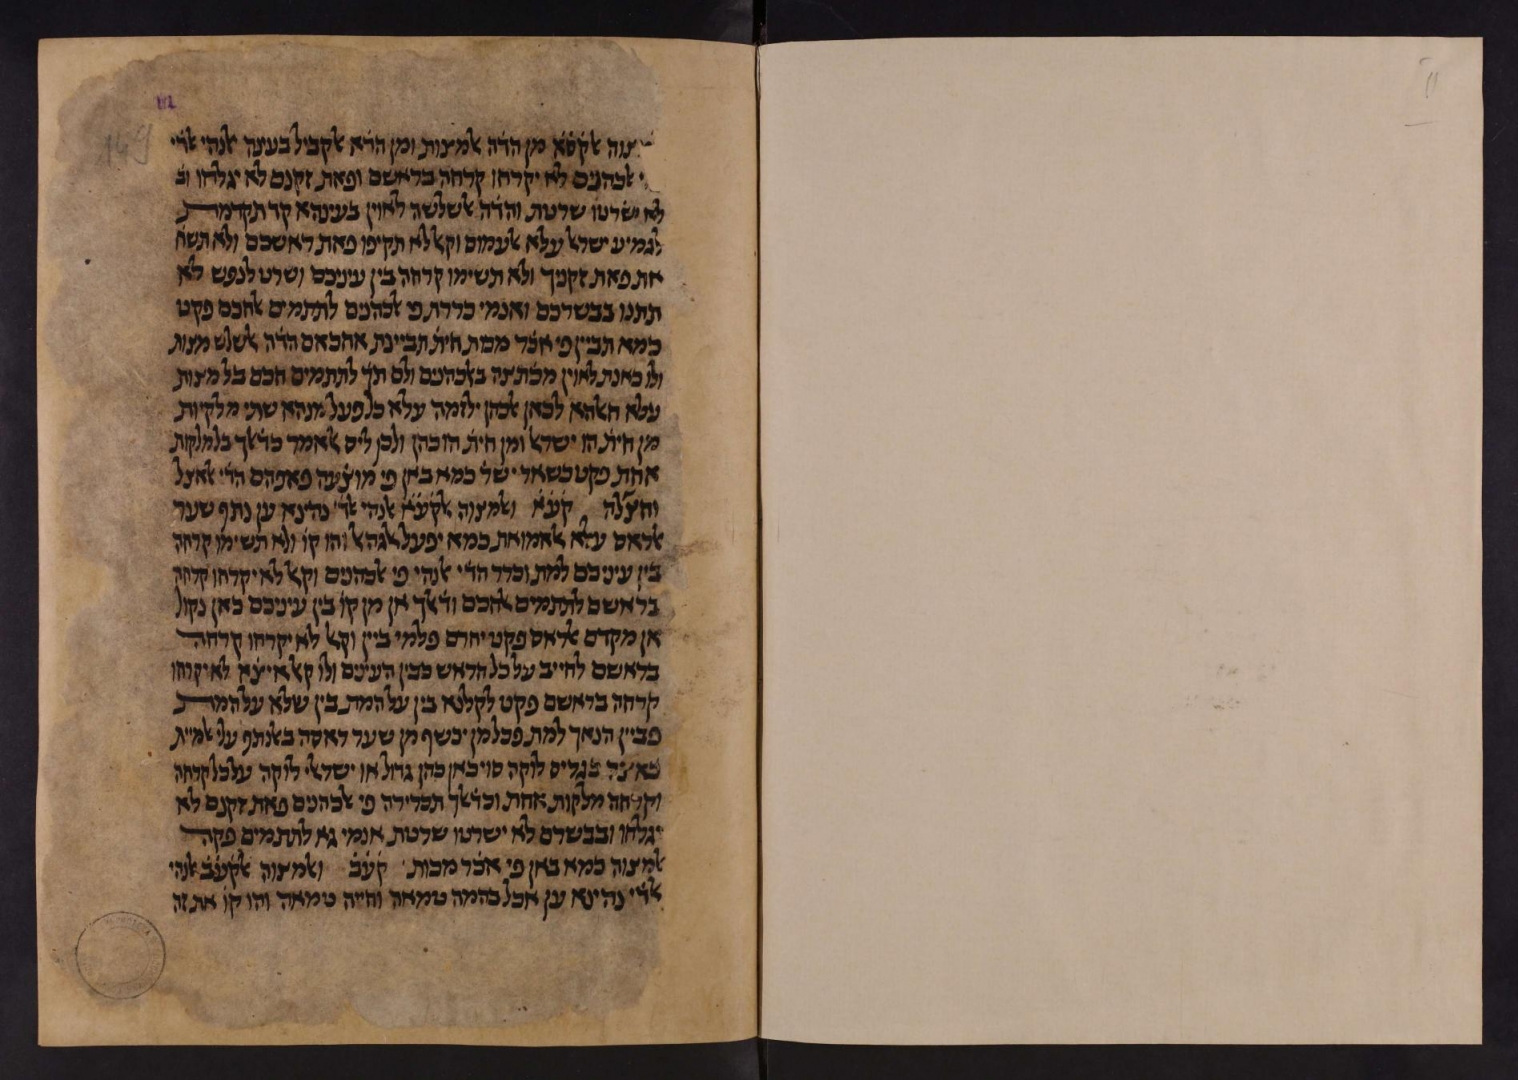 מצוה אלקסא מן הדה אלמצות ומן הדא אלקביל בעינה אלנהי אלדי
אלכהנים לא יקרחו קרחה בראשם ופאת זקנם לא יגלחו וב
לא ישרטו שרטת והדה אלשלשה לאוין בעינהא קד תקדמת
לגמיע ישראל עלא אלעמום וקאל לא תקיפו פאת ראשכם ולא תשח
את פאת זקניך ולא תשימו קרחה בין עיניכם ושרט לנפש לא
תתנו בבשרכם ואנמי כררת פי אלכהנים לתתמים אלחכם פקט
כמא תביין פי אכר מכות חית תביינת אחכאם הדה אלשלש מצות
ולו כאנת לאוין מכתצה באלכהנים ולם תך לתתמים חכם בל מצות
עלא חאלהא לכאן אלכהן ילזמה עלא כל פעל מנהא שתי מלקיות
מן חית הו ישראל ומן חית הו כהן ולכן ליס אלאמר כדלך בל מלקות
אחת פקט כשאר ישר׳ כמא באן פי מוצעה פאפהם הדי אלאצל
וחצלה קעא ואלמצוה אלקעא אלנהי אלדי נהינא ען נתף שער
אלראס עלא אלאמואת כמא יפעל אלגהאל והו קו׳ ולא תשימו קרחה
בין עיניכם למת וכרר הדי אלנהי פי אלכהנים וקאל לא יקרחו קרחה
בראשם לתתמים אלחכם ודלך אן מן קו׳ בין עיניכם כאן נקול
אן מקדם אלראס פקט יחרם פלמי ביין וקאל לא יקרחו קרחה
בראשם לחייב על כל הראש כבין העינים ולו קאל איצא לא יקרחו
קרחה בראשם פקט לקלנא בין על המת בין שלא על המת
פביין הנאך למת פכל מן יכשף מן שער ראסה באלנתף עלי אלמיית
כאצה כגריס לוקה סוי כאן כהן גדול או ישראלי לוקה על כל קרחה
וקרחה מלקות אחת וכדלך תכרירה פי אלכהנים פאת זקנם לא
יגלחו ובבשרם לא ישרטו שרטת אנמי גא לתתמים פקה
אלמצוה כמא באן פי אכר מכות קעב ואלמצוה אלקעב אלנהי
אלדי נהינא ען אכל בהמה טמאה וחייה טמאה והו קו׳ את זה